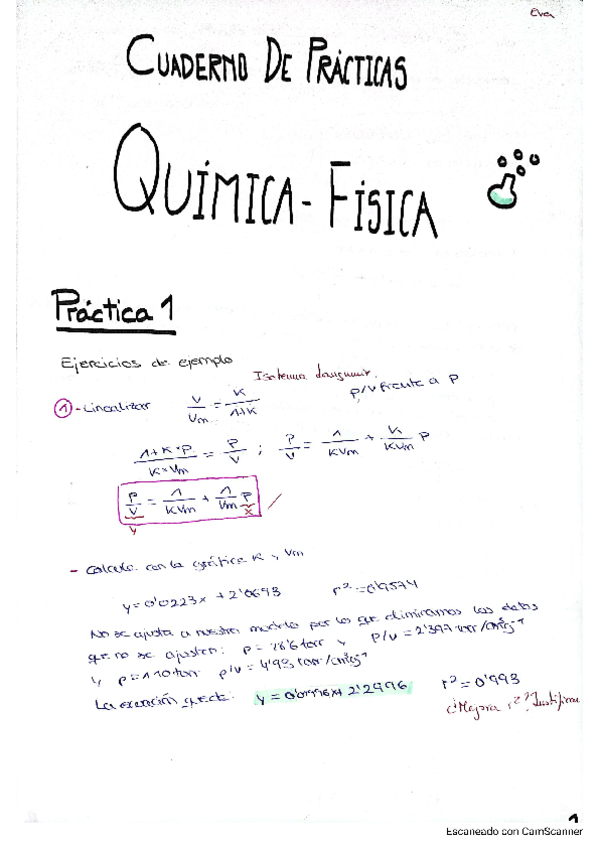 Eva
CUADERNO DE PRÁCTICAS
QUÍMICA - FÍSICA
Práctica 1
Ejercicios de ejemplo
Isoterma Langmuir.
p/v frente a p
① - Linealizar V/Vm = K/1+K
1+K·P/K×Vm = P/V ; P/V = 1/KVm + K/KVm P
P/V = 1/KVm + 1/Vm P
y x
- Calcula con la gráfica K y Vm
y = 0'0223x + 2'0693 r² = 0'9574
No se ajusta a nuestro modelo por lo que eliminamos los datos
que no se ajusten: p = 76'6 torr y p/v = 2'377 torr/cm³g⁻¹
y p = 110 torr p/v = 4'93 torr/cm³g⁻¹
La ecuación queda: y = 0'01996x + 2'2996 r² = 0'993
¿Mejora r²? Justifica
1
Escaneado con CamScanner